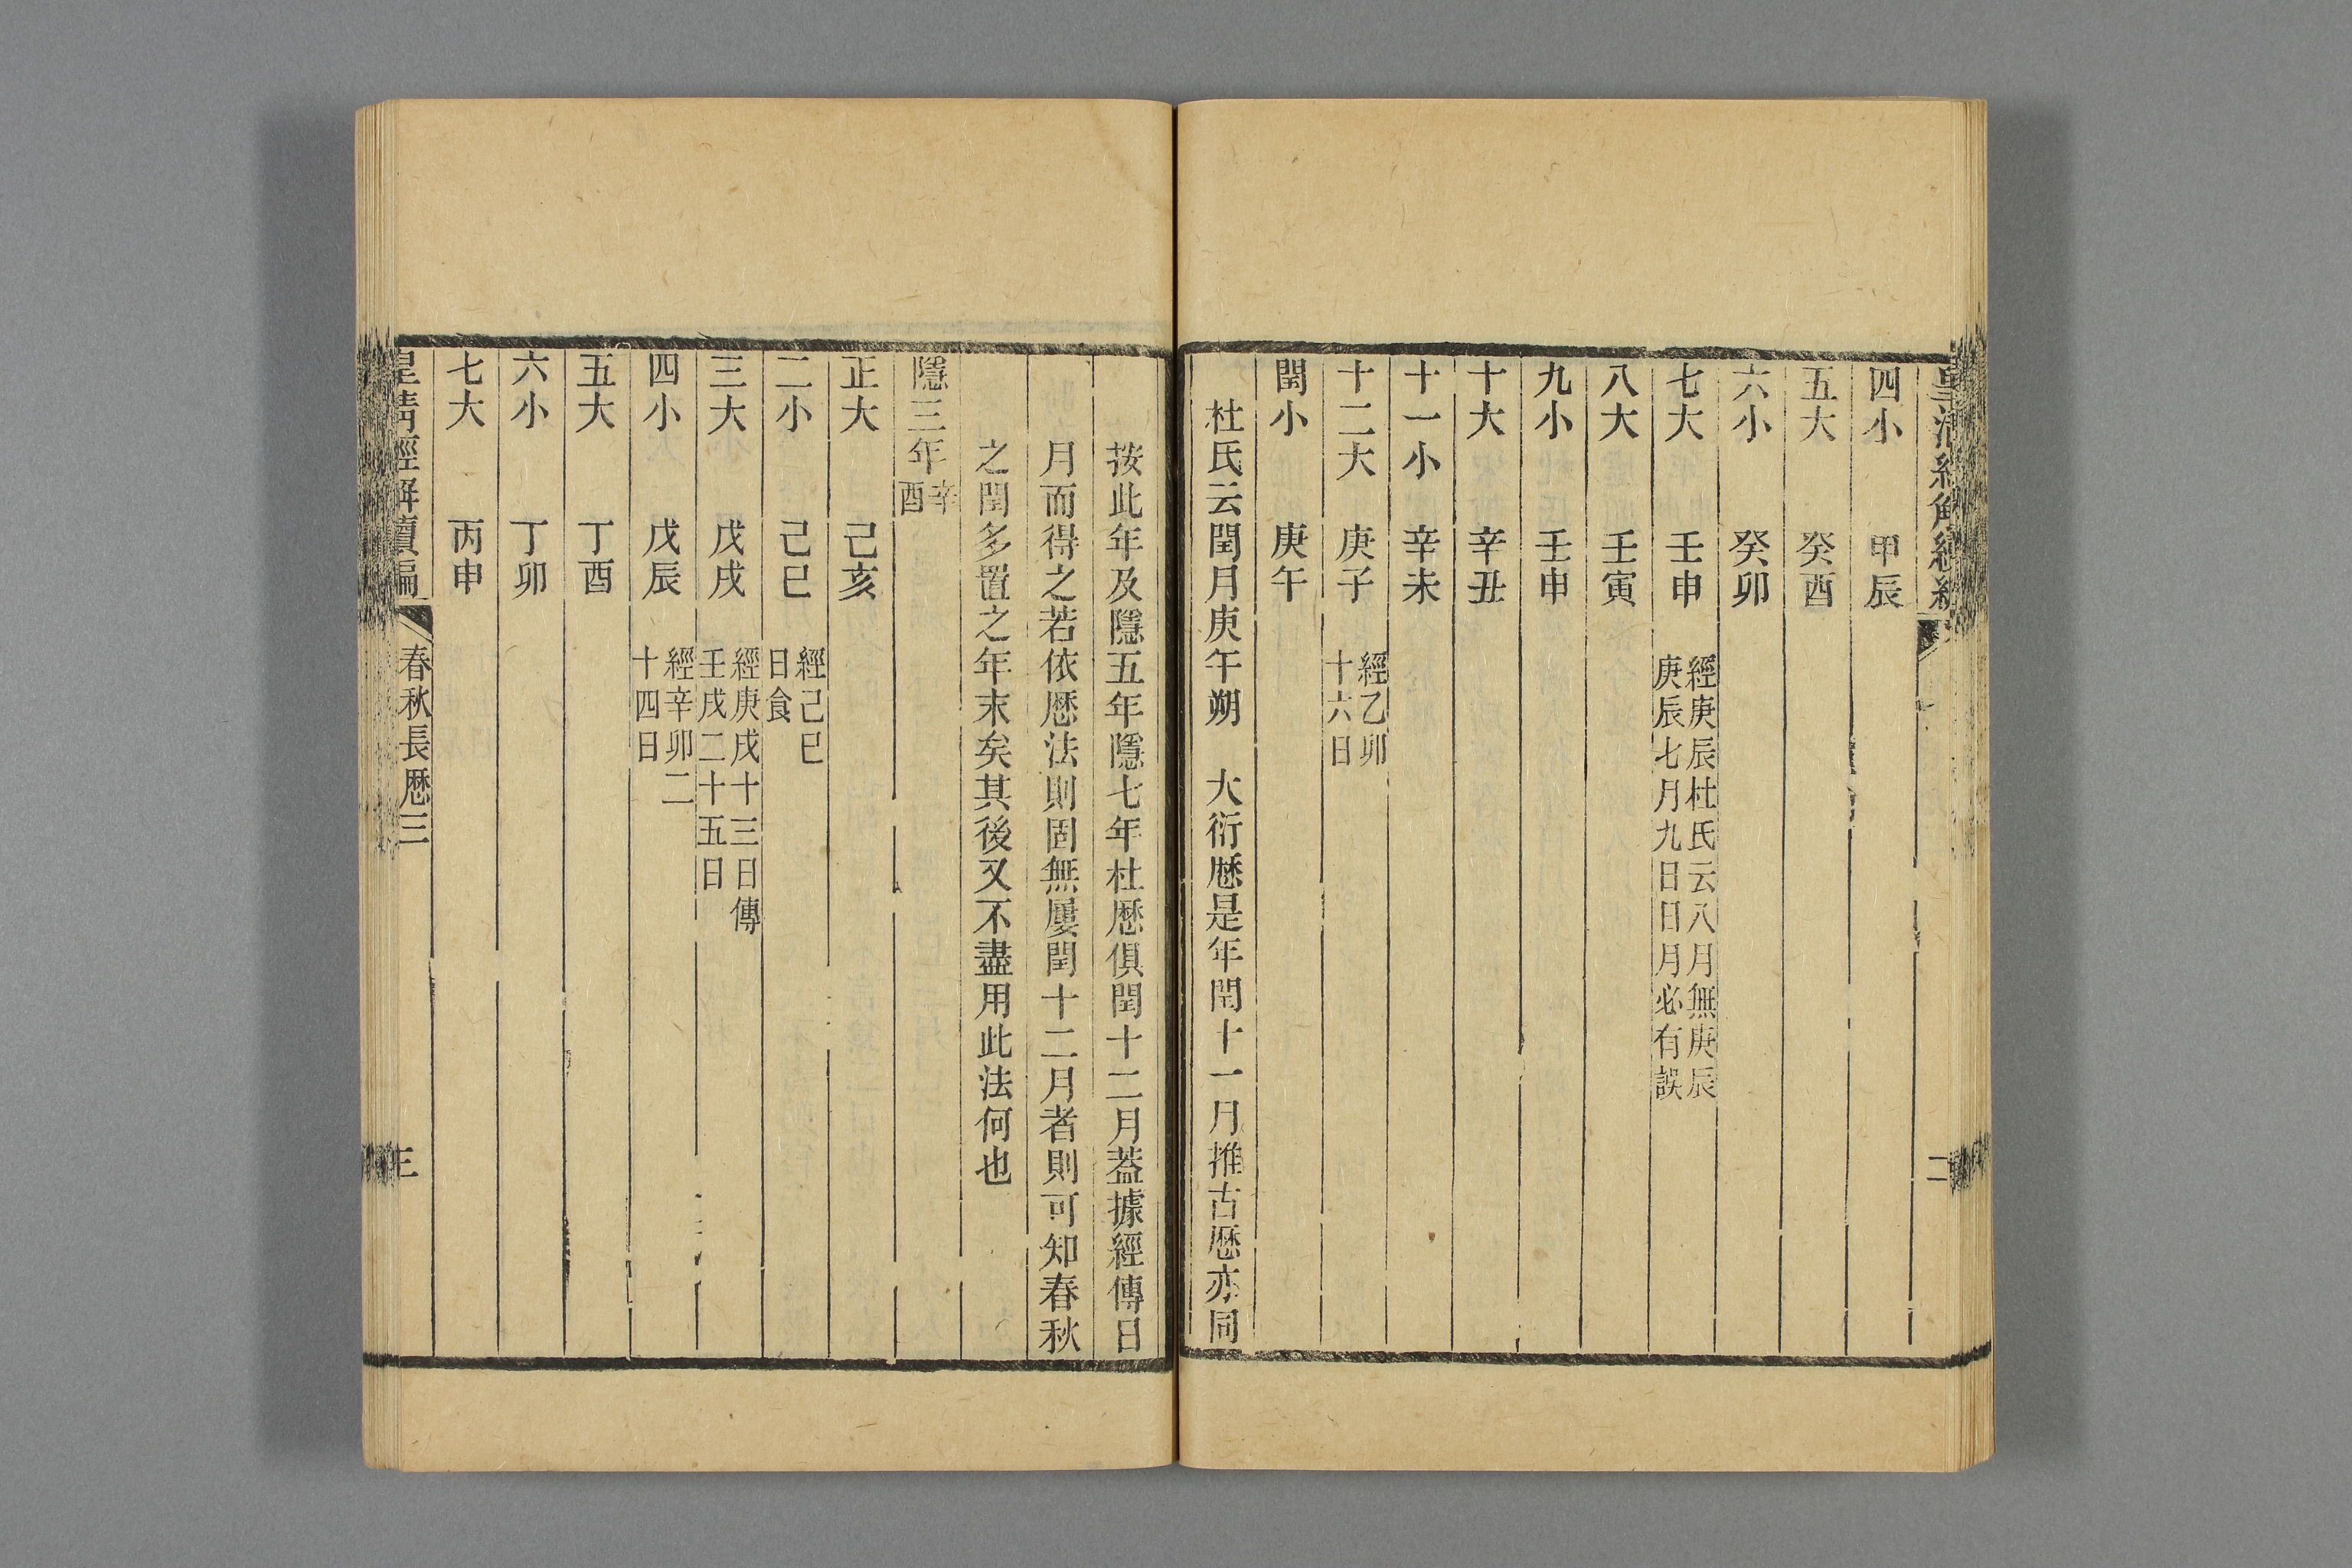 四小 甲辰
五大 癸酉
六小 癸卯
七大 壬申 經庚辰杜氏云八月無庚辰
庚辰七月九日日月必有誤
八大 壬寅
九小 壬申
十大 辛丑
十一小 辛未
十二大 庚子 經乙卯
十六日
閏小 庚午
杜氏云閏月庚午朔 大衍厯是年閏十一月推古厯亦同
二
按此年及隱五年隱七年杜厯俱閏十二月葢據經傳日
月而得之若依厯法則固無屢閏十二月者則可知春秋
之閏多置之年末矣其後又不盡用此法何也
隱三年 辛
酉
正大 己亥
二小 己巳 經己巳
日食
三大 戊戌 經庚戌十三日傳
壬戌二十五日
四小 戊辰 經辛卯二
十四日
五大 丁酉
六小 丁卯
七大 丙申
皇清經解續編 春秋長厯三 三